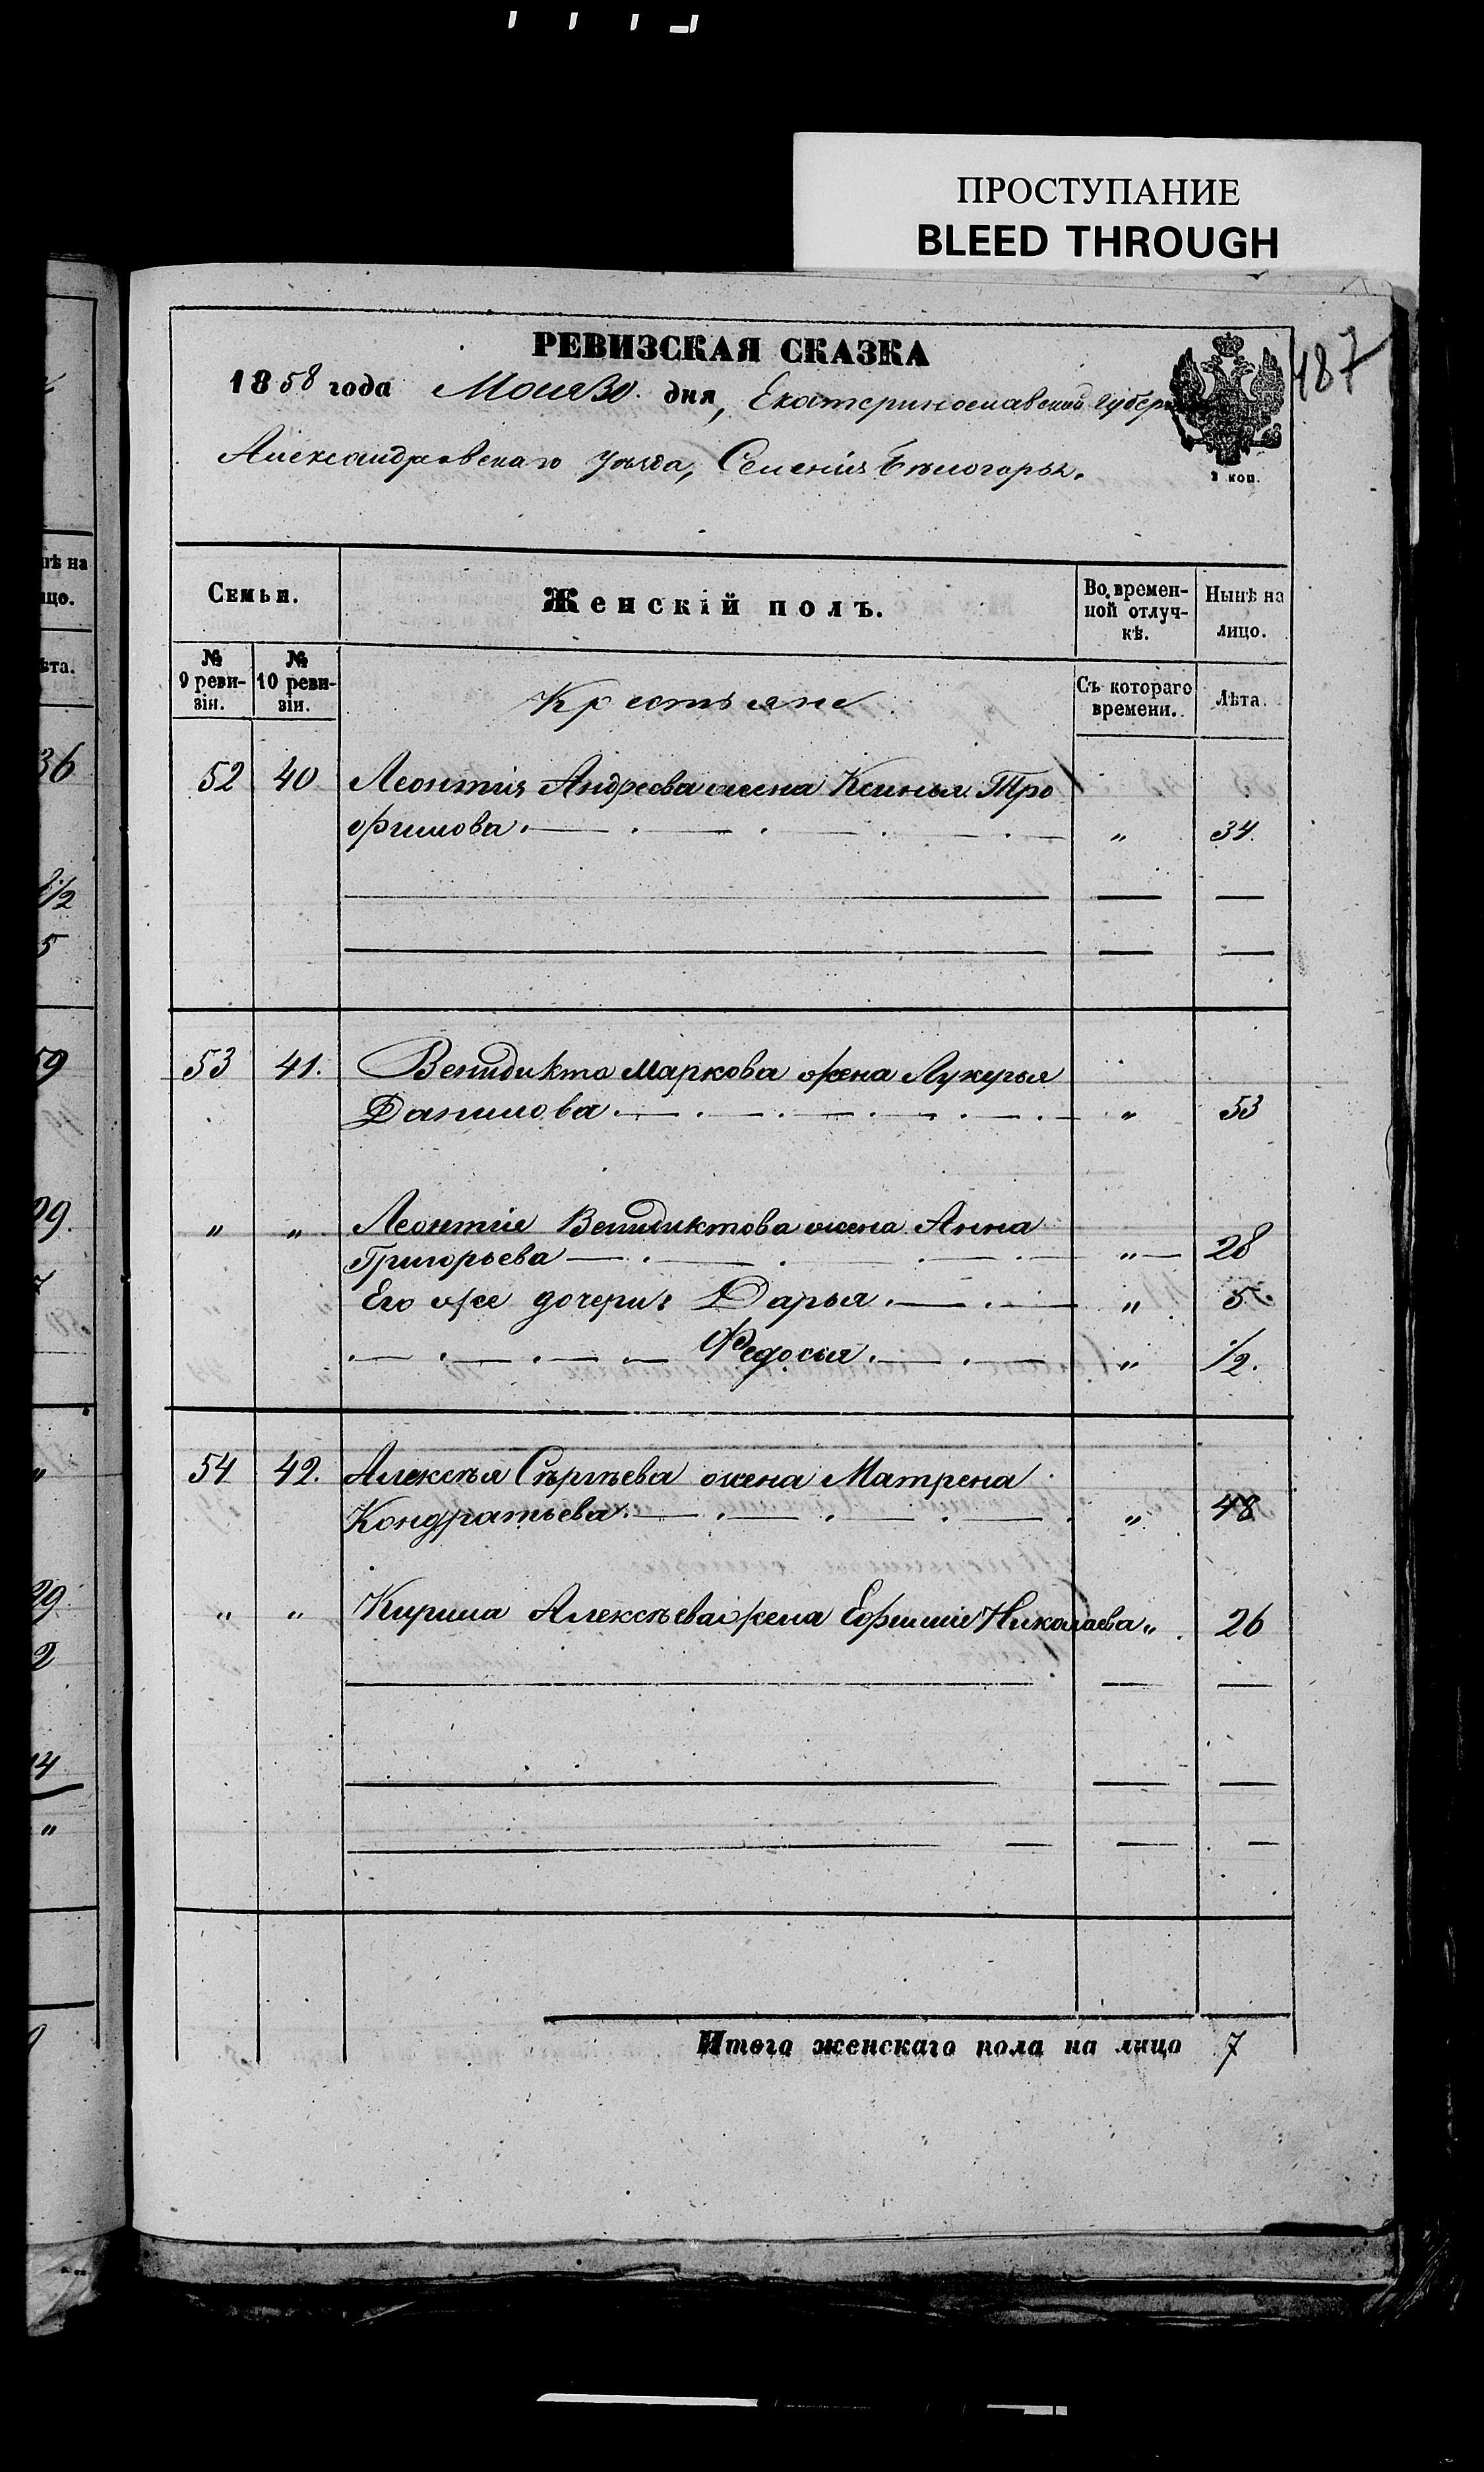 ПРОСТУПАНИЕ
BLEED THROUGH
РЕВИЗСКАЯ СКАЗКА
487
1858 года Мая 30. дня, Екатеринославской Губерніи
Александровскаго уѣзда, Селенія Бѣлогорья.
2 коп.
Семьи.
Женскій полъ.
Во времен-
ной отлуч-
кѣ.
Нынѣ на
лицо.
№
9 реви-
зіи.
№
10 реви-
зіи.
Крестьяне
Съ котораго
времени.
Лѣта.
52 40 Леонтія Андреева жена Ксинья Тро
фимова. „ 34.
53 41. Венидикта Маркова жена Лукерья
Данилова „ 53
„ „ Леонтія Венидиктова жена Анна
Григорьева „ 28
Его же дочери: Дарья „ 5
Федосья „ 1/2.
54 42. Алексѣя Сѣргѣева жена Матрена
Кондратьева „ 48
„ „ Кирила Алексѣева жена Ефимія Николаева „ 26
Итого женскаго пола на лицо 7
нѣ на
цо.
ѣта.
36
1/2
5
59
29
2